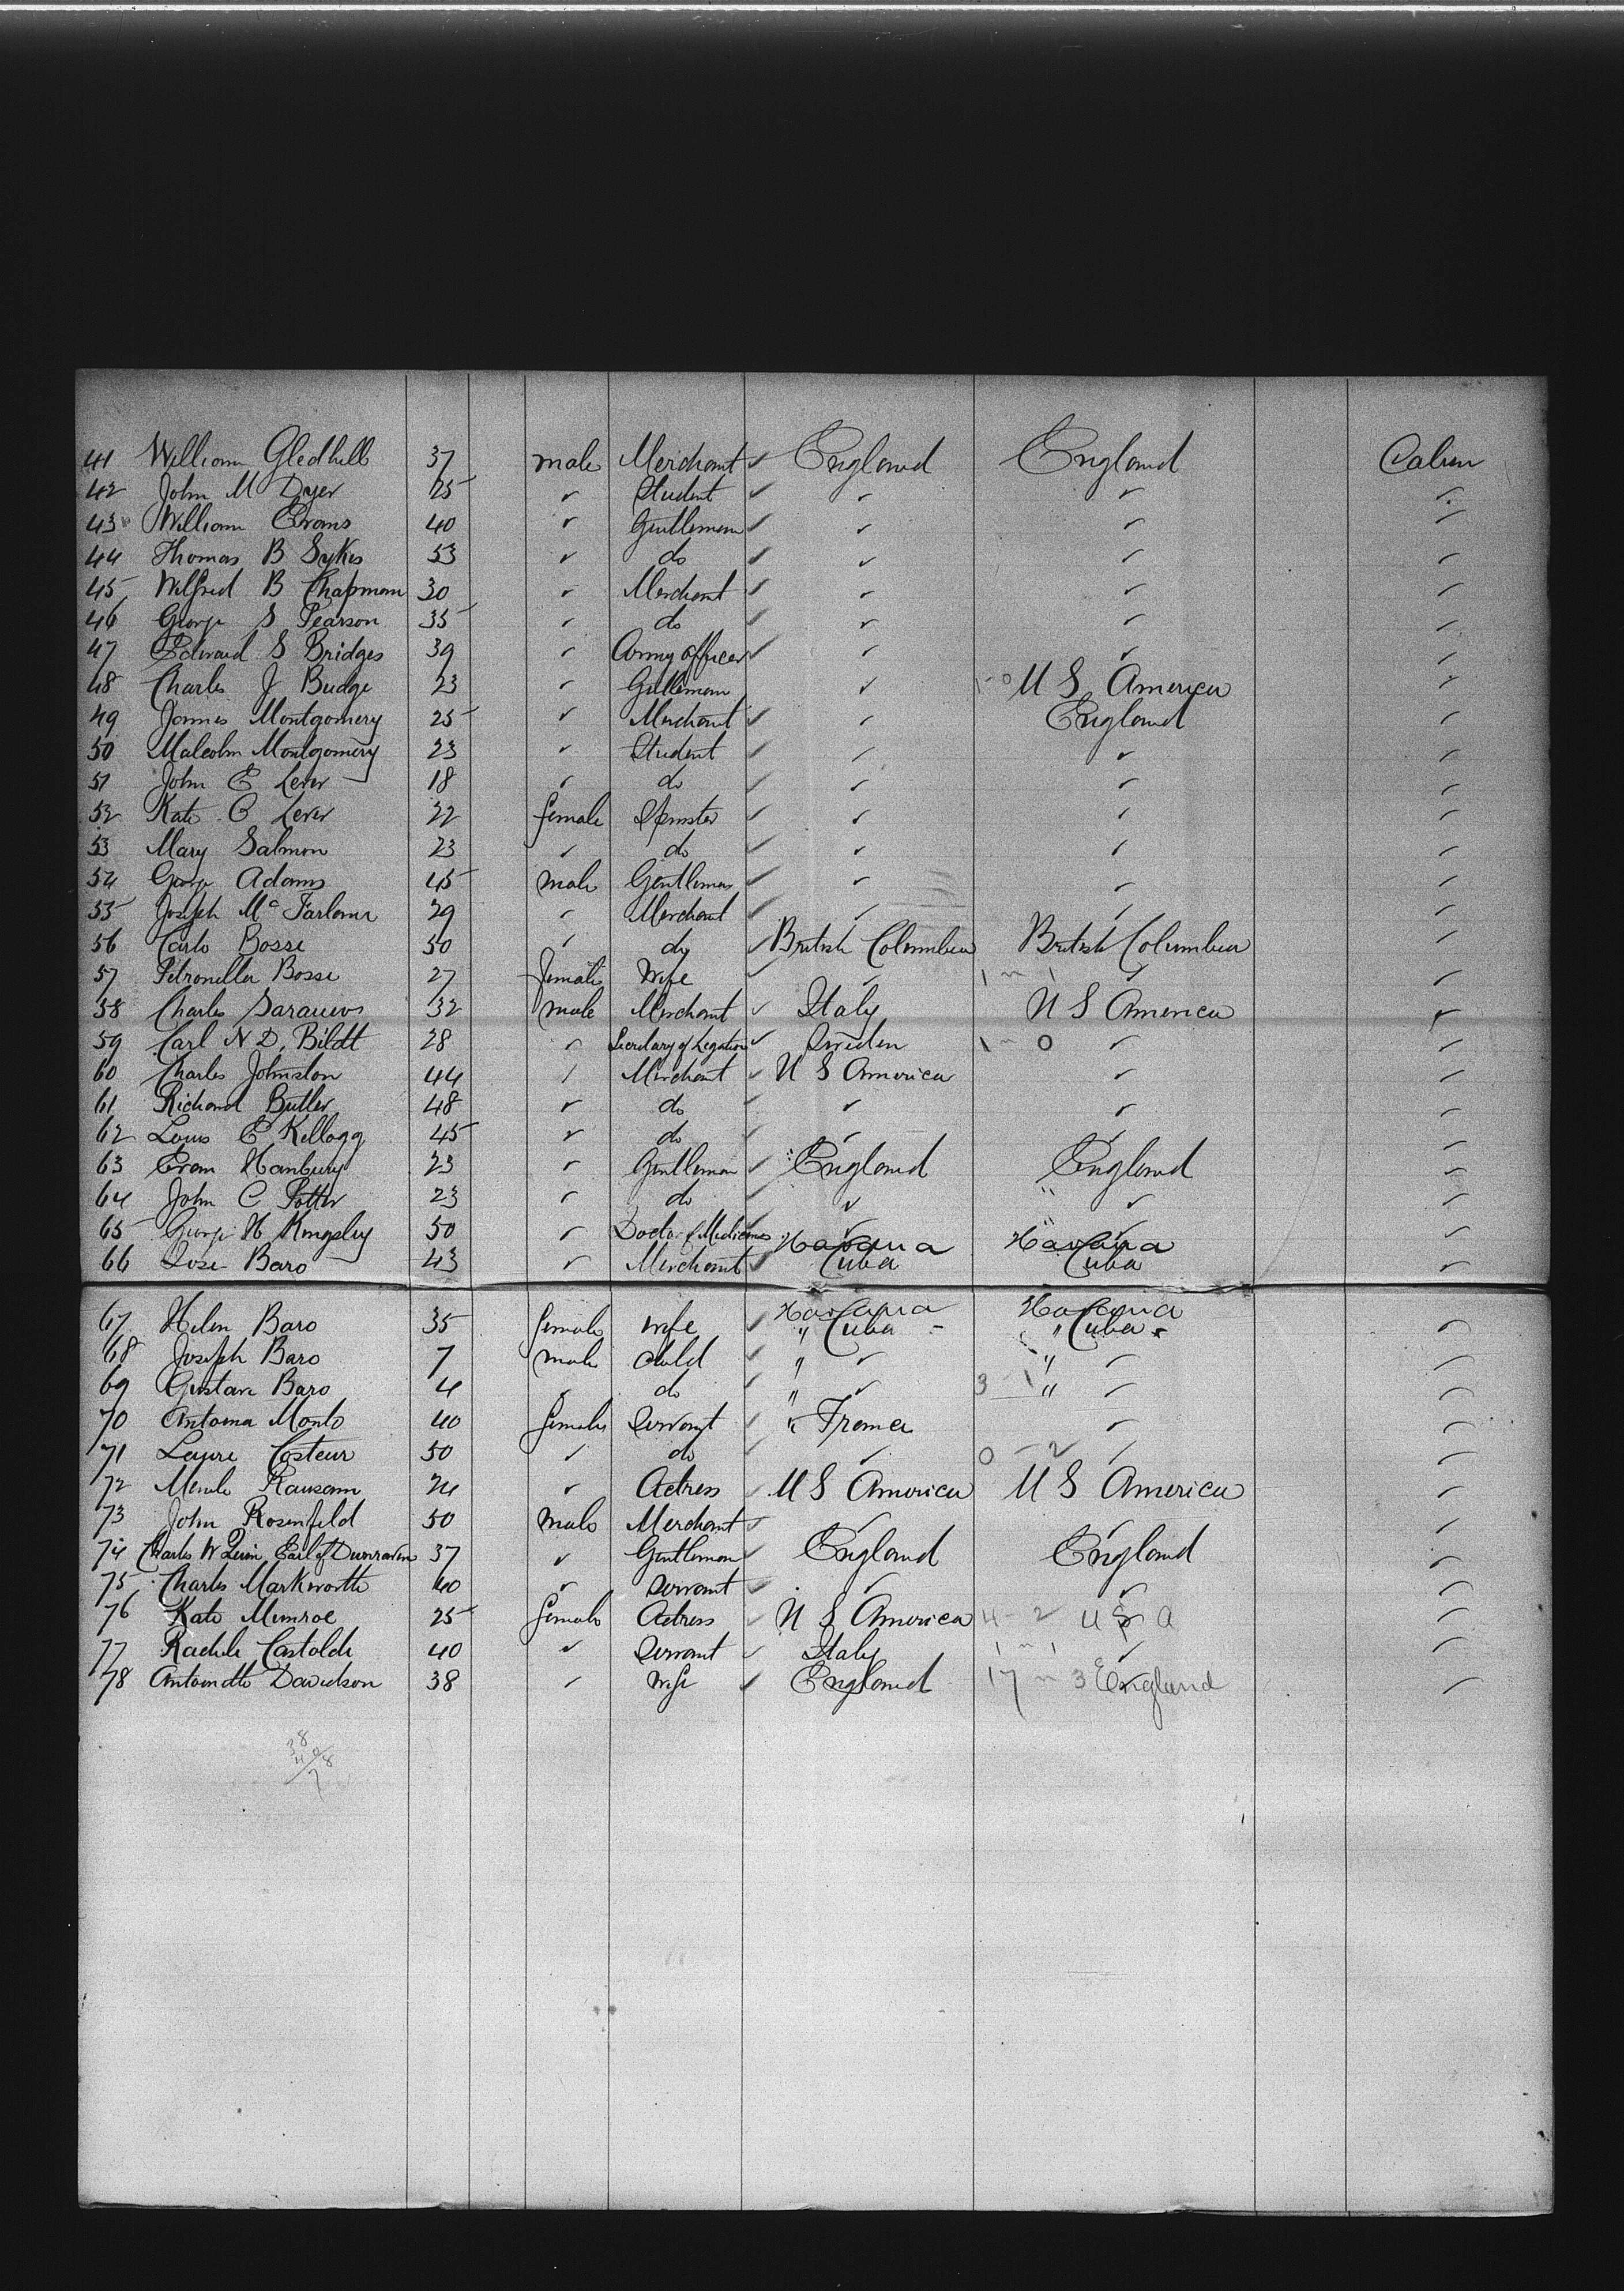 41 William Gledhill 37 male Merchant ✓ England England Cabin
42 John M Dyer 25 ✓ Student ✓ ✓ ✓ ✓
43 William Evans 40 ✓ Gentleman ✓ ✓ ✓ ✓
44 Thomas B Sykes 53 ✓ do ✓ ✓ ✓ ✓
45 Wilfred B Chapman 30 ✓ Merchant ✓ ✓ ✓ ✓
46 George S Pearson 35 ✓ do ✓ ✓ ✓ ✓
47 Edward S Bridges 39 ✓ Army officer ✓ ✓ ✓ ✓
48 Charles J Budge 23 ✓ Gentleman ✓ 1-0 U S America ✓
49 James Montgomery 25 ✓ Merchant ✓ ✓ England ✓
50 Malcolm Montgomery 23 ✓ Student ✓ ✓ ✓ ✓
51 John E Lever 18 ✓ do ✓ ✓ ✓ ✓
52 Kate Lever 22 female Spinster ✓ ✓ ✓ ✓
53 Mary Salmon 23 ✓ do ✓ ✓ ✓ ✓
54 George Adams 45 male Gentleman ✓ ✓ ✓ ✓
55 Joseph McFarlane 29 ✓ Merchant ✓ ✓ ✓ ✓
56 Carlo Bossi 50 ✓ do ✓ British Columbia British Columbia ✓
57 Petronella Bossi 27 female Wife ✓ ✓ 1 " 1 ✓ ✓
58 Charles 32 male Merchant ✓ Italy U S America ✓
59 Carl N D. Bildt 28 ✓ Secretary of Legation ✓ Sweden 1 " 0 ✓ ✓
60 Charles Johnston 44 ✓ Merchant ✓ U S America ✓ ✓
61 Richard Butler 48 ✓ do ✓ ✓ ✓ ✓
62 Louis E Kellogg 45 ✓ do ✓ ✓ ✓ ✓
63 Evan Hanbury 23 ✓ Gentleman ✓ England England ✓
64 John C Potter 23 ✓ do ✓ ✓ " ✓ ✓
65 George H Kingsley 50 ✓ Doctor of Medicines ✓ ✓ ✓ ✓
66 Jose Baro 43 ✓ Merchant ✓ Havana Cuba Havana Cuba ✓
67 Helen Baro 35 female wife ✓ Havana " Cuba Havana " Cuba ✓
68 Joseph Baro 7 male child ✓ " ✓ " ✓ ✓
69 Gustave Baro 4 ✓ do ✓ " ✓ 3 - 1 " ✓ ✓
70 Antoina Monto 40 female Servant ✓ " France ✓ ✓
71 Costeur 50 ✓ do ✓ ✓ 0 - 2 ✓ ✓
72 Ransom 24 ✓ Actress ✓ U S America U S America ✓
73 John Rosenfeld 50 male Merchant ✓ ✓ ✓ ✓
74 Charles W Quin, Earl of Dunraven 37 ✓ Gentleman ✓ England England ✓
75 Charles Markworth 40 ✓ Servant ✓ ✓ ✓ ✓
76 Kate Munroe 25 female Actress ✓ U S America 4 - 2 U S A ✓
77 Castoldi 40 ✓ Servant ✓ Italy 1 " 1 ✓ ✓
78 Davidson 38 ✓ Wife ✓ England 17 " 3 England ✓